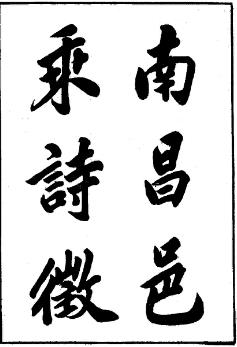 南昌邑
乘詩徵